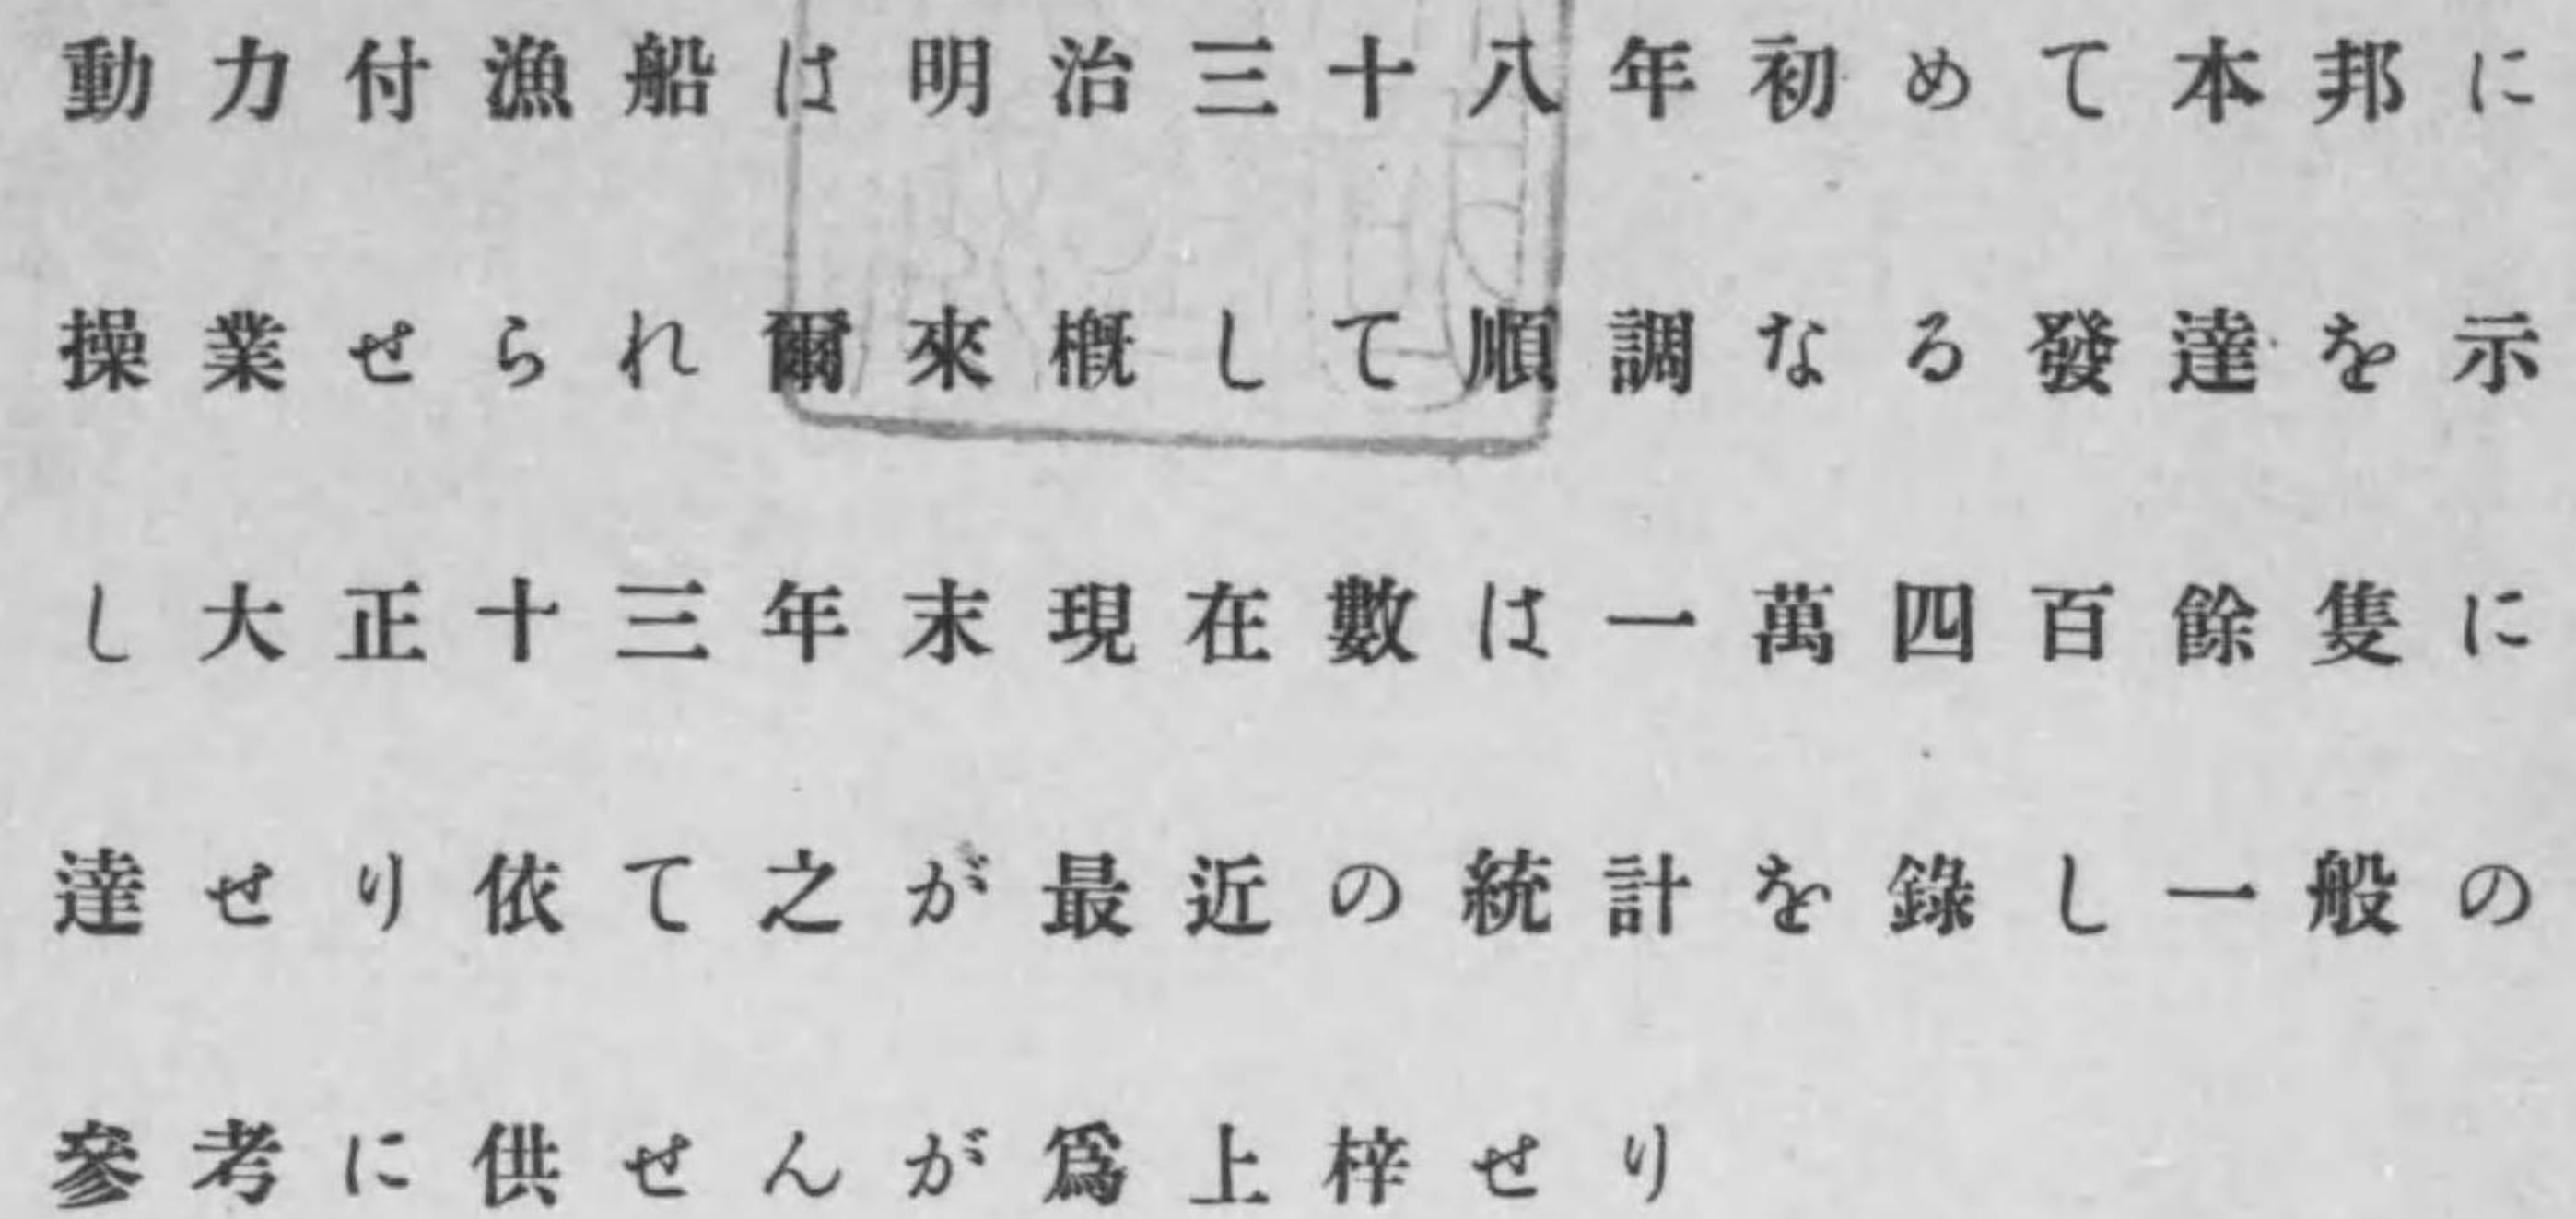 動力付漁船は明治三十八年初めて本邦に
操業せられ爾來槪して順調なる發達を示
し大正十三年末現在數は一萬四百餘隻に
達せり依て之が最近の統計を錄し一般の
參考に供せんが爲上梓せり